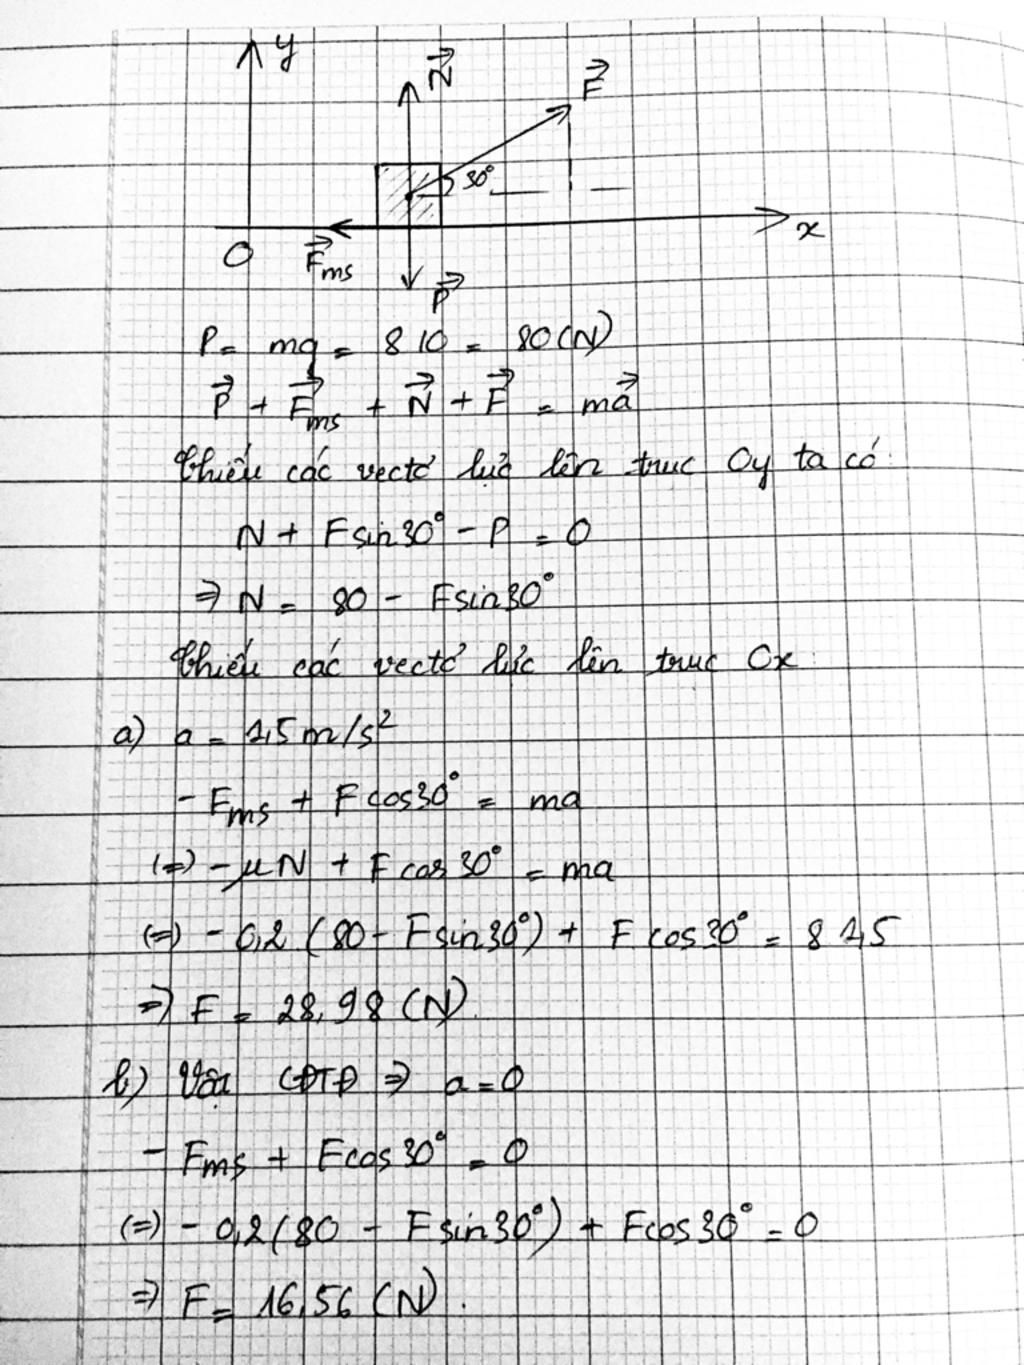 y
N
F
30°
O
Fms
P
x
P = mg = 8.10 = 80 (N)
P + Fms + N + F = ma
Chiếu các vectơ lực lên trục Oy ta có:
N + Fsin30° - P = 0
=> N = 80 - Fsin30°
Chiếu các vectơ lực lên trục Ox
a) a = 1,5 m/s²
- Fms + Fcos30° = ma
(=) - μN + Fcos30° = ma
(=) - 0,2 (80 - Fsin30°) + F cos30° = 8.1,5
=> F = 28,98 (N).
b) Vật CĐTĐ => a = 0
- Fms + Fcos30° = 0
(=) - 0,2(80 - Fsin30°) + Fcos30° = 0
=> F = 16,56 (N).